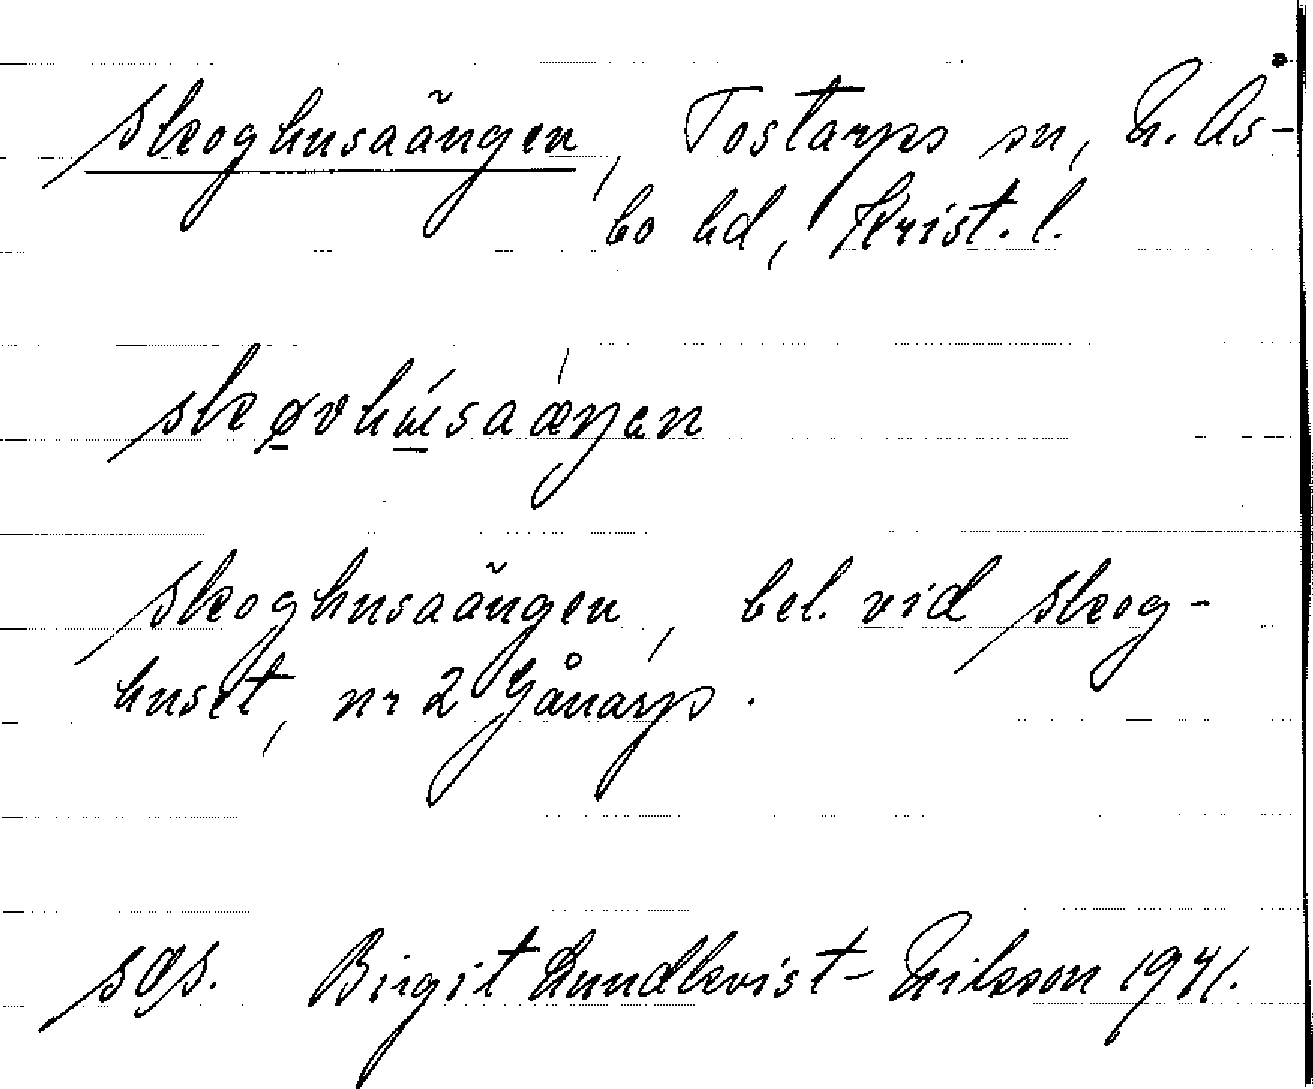 Skoghusaängen, Tostarps sn, N. Ås-
bo hd, Krist. l.
skøvhúsaæŋan
Skoghusaängen, bel. vid Skog-
huset, nr 2 Gånarp.
SOS. Birgit Lundkvist-Nilsson 1941.